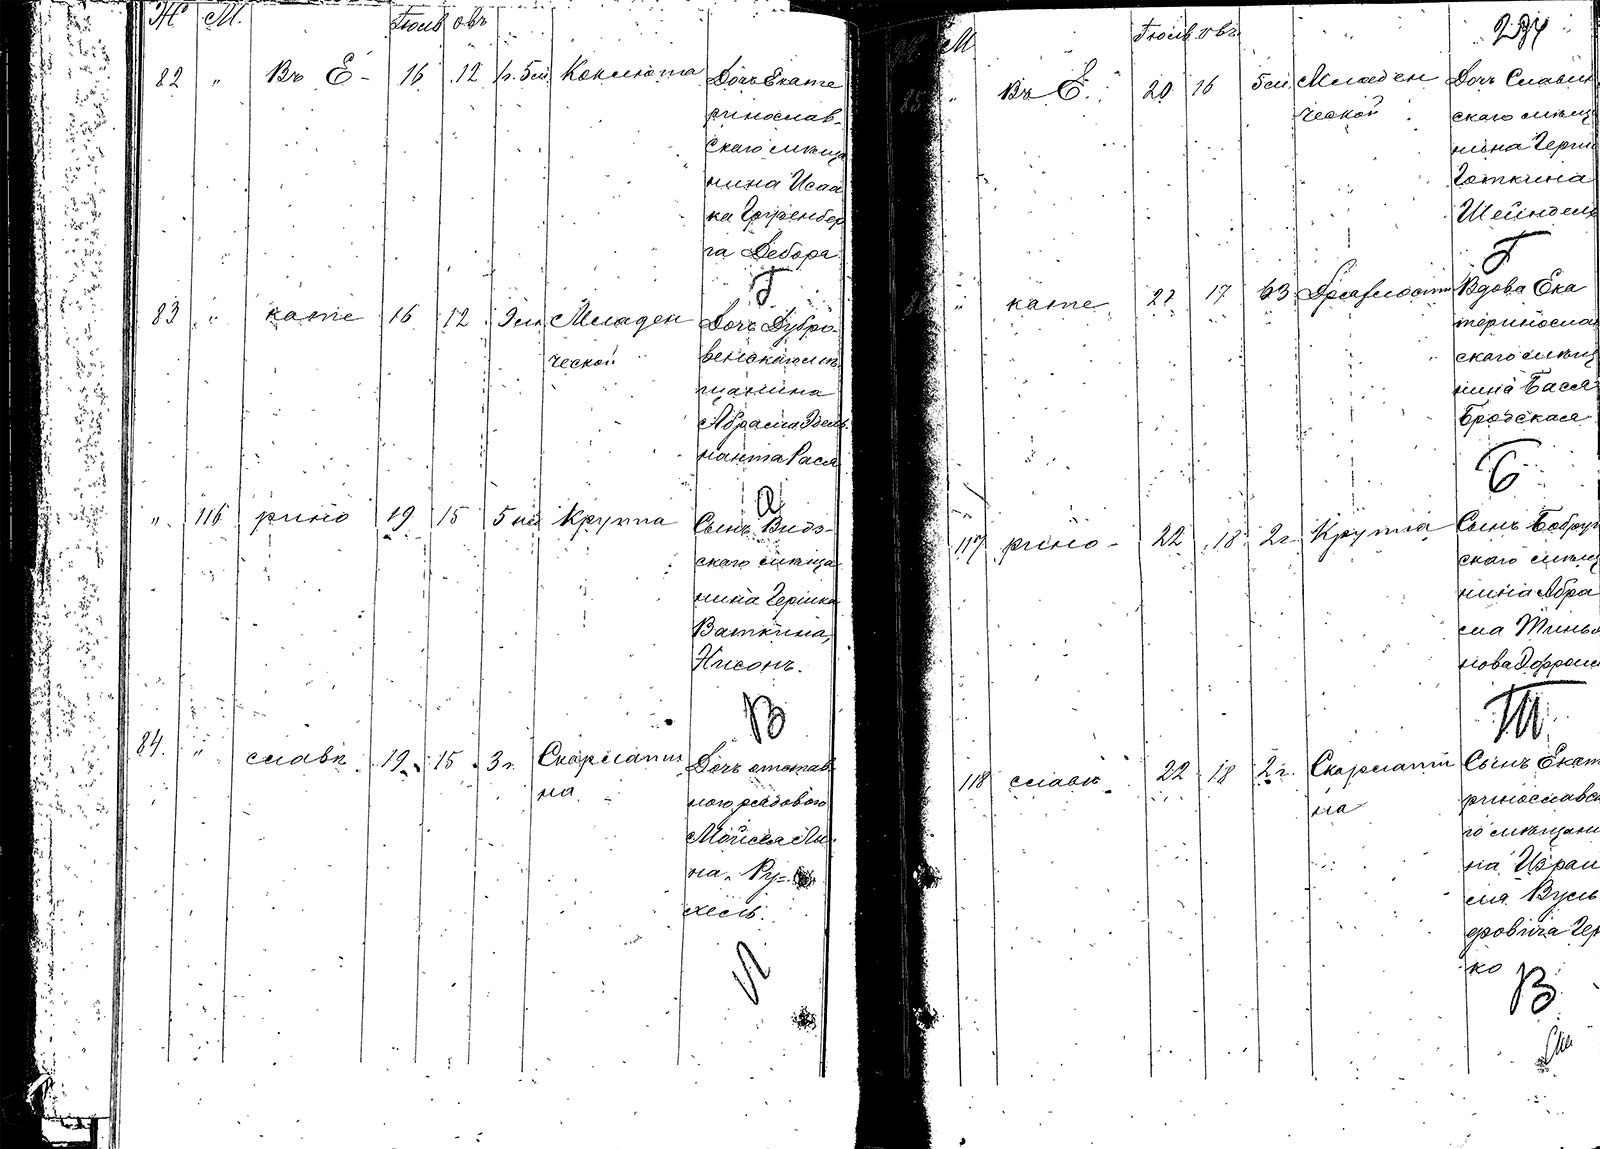 Ж М. Іюль овъ
82 " Въ Е- 16 12 1г. 5м. Коклюша Дочь Екате
ринослав-
скаго мѣща
нина Исаа
ка Гринбер
га Дебора
Г
83 " кате 16 12 9 м. Младен Дочь Дубро
ческой венскаго мѣ
щанина
Абрама Эдель
манта Рася
" 116 рино 19 15 5 м Круппа Сынъ Видз-
скаго мѣща
нина Гершка
Ваткина,
Нисонъ.
В
84. " славѣ 19 15 3 г. Скарлати Дочь отстав
на наго рядоваго
Мойсея Ли
на, Ру=
хель.
Л
М Іюль овъ 234
85 " Въ Е. 20 16 5 м. Младен Дочь Славян
ческой скаго мѣщ
нина Герш
Готкина
Шейндель
Г
86 " кате 21 17 63 Дряхлости Вдова Ека
теринослав
скаго мѣщ
нина Бася
Бродская
Б
117 рино- 22 18 2г. Круппа Сынъ Бобруй
скаго мѣщ
нина Абра
ма
нова
118 славѣ 22 18 2г. Скарлати Сынъ Екат
на ринославск
го мѣщани
на Израи
ля Вуль
фовича Гер
ко
В